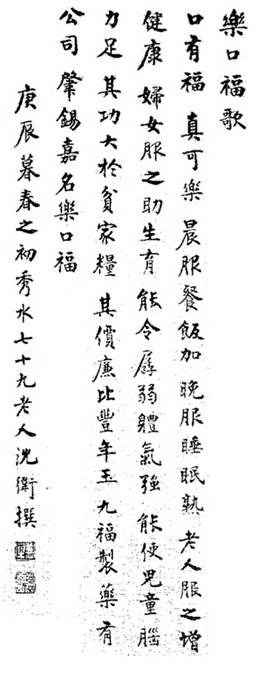 樂口福歌
口有福 真可樂 晨服餐飯加 晚服睡眠熟 老人服之增
健康 婦女服之助生育 能令孱弱體氣強 能使兒童腦
力足 其功大於貧家糧 其價廉比豐年玉 九福製藥有
公司 肇錫嘉名樂口福
庚辰暮春之初秀水七十九老人沈衛撰